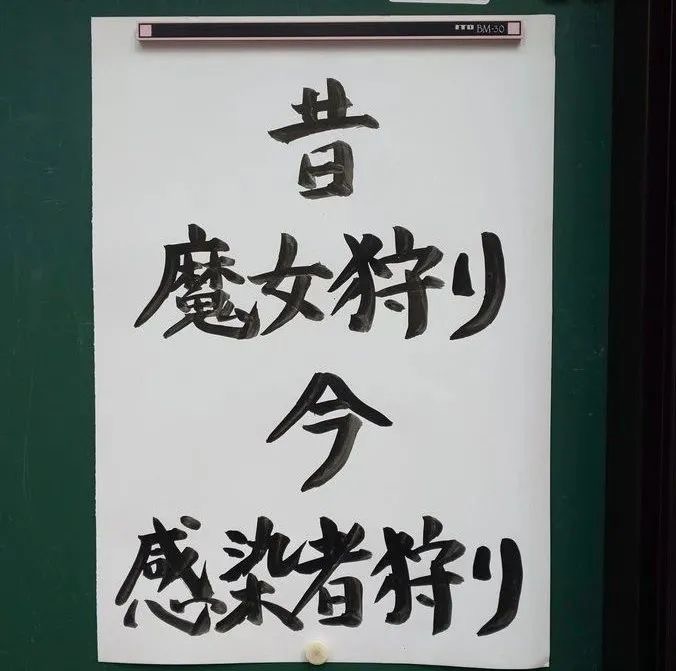 ITO BM-30
昔
魔女狩り
今
感染者狩り